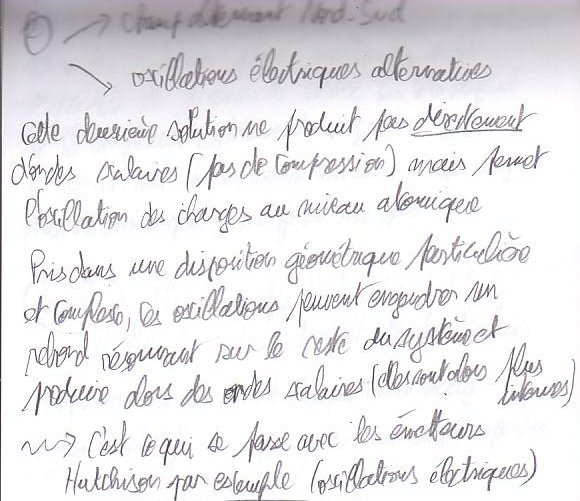 → champ alternant Nord-Sud
→ oscillations électriques alternatives
Cette deuxième solution ne produit pas directement
d'ondes scalaires (pas de compression) mais permet
l'oscillation des charges au niveau atomique
Pris dans une disposition géométrique particulière
et complexe, les oscillations peuvent engendrer un
rebond résonnant sur le reste du système et
produire alors des ondes scalaires (elles sont alors plus
intenses)
~~> C'est ce qui se passe avec les émetteurs
Hutchison par exemple (oscillations électriques)